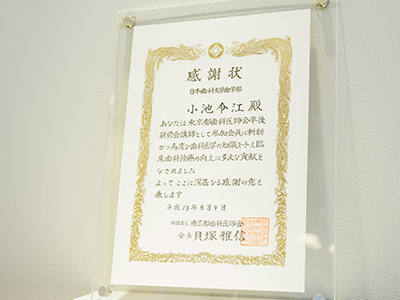 感謝状
日本歯科大学歯学部
小池令江 殿
あなたは東京都歯科医師会卒後
研修会講師として参加会員に斬新
かつ高度な歯科医学の知識を与え臨
床歯科診療の向上に多大な貢献を
なされました
よってここに深甚なる感謝の意を
表します
平成13年6月9日
社団法人 東京都歯科医師会
会長 貝塚雅信